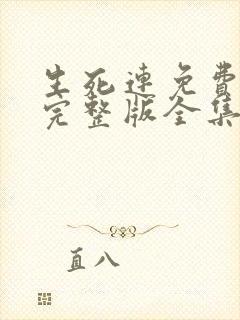 生死连免费
完整版全集
直八